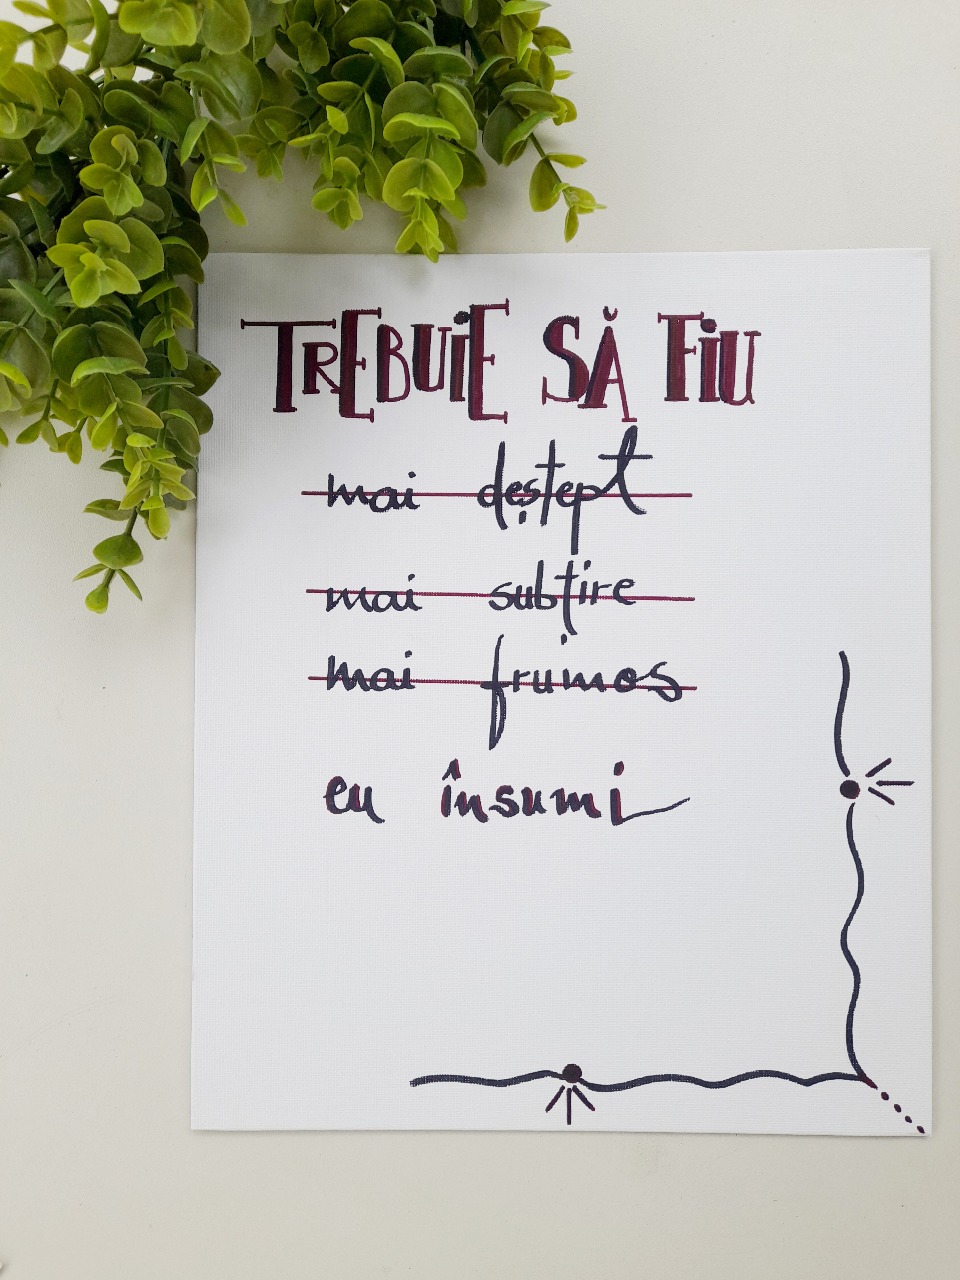 TREBUIE SĂ FIU
mai deștept
mai subțire
mai frumos
eu însumi